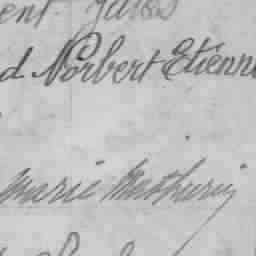 ent Jules
d Norbert Etienn
Marie Mathurin